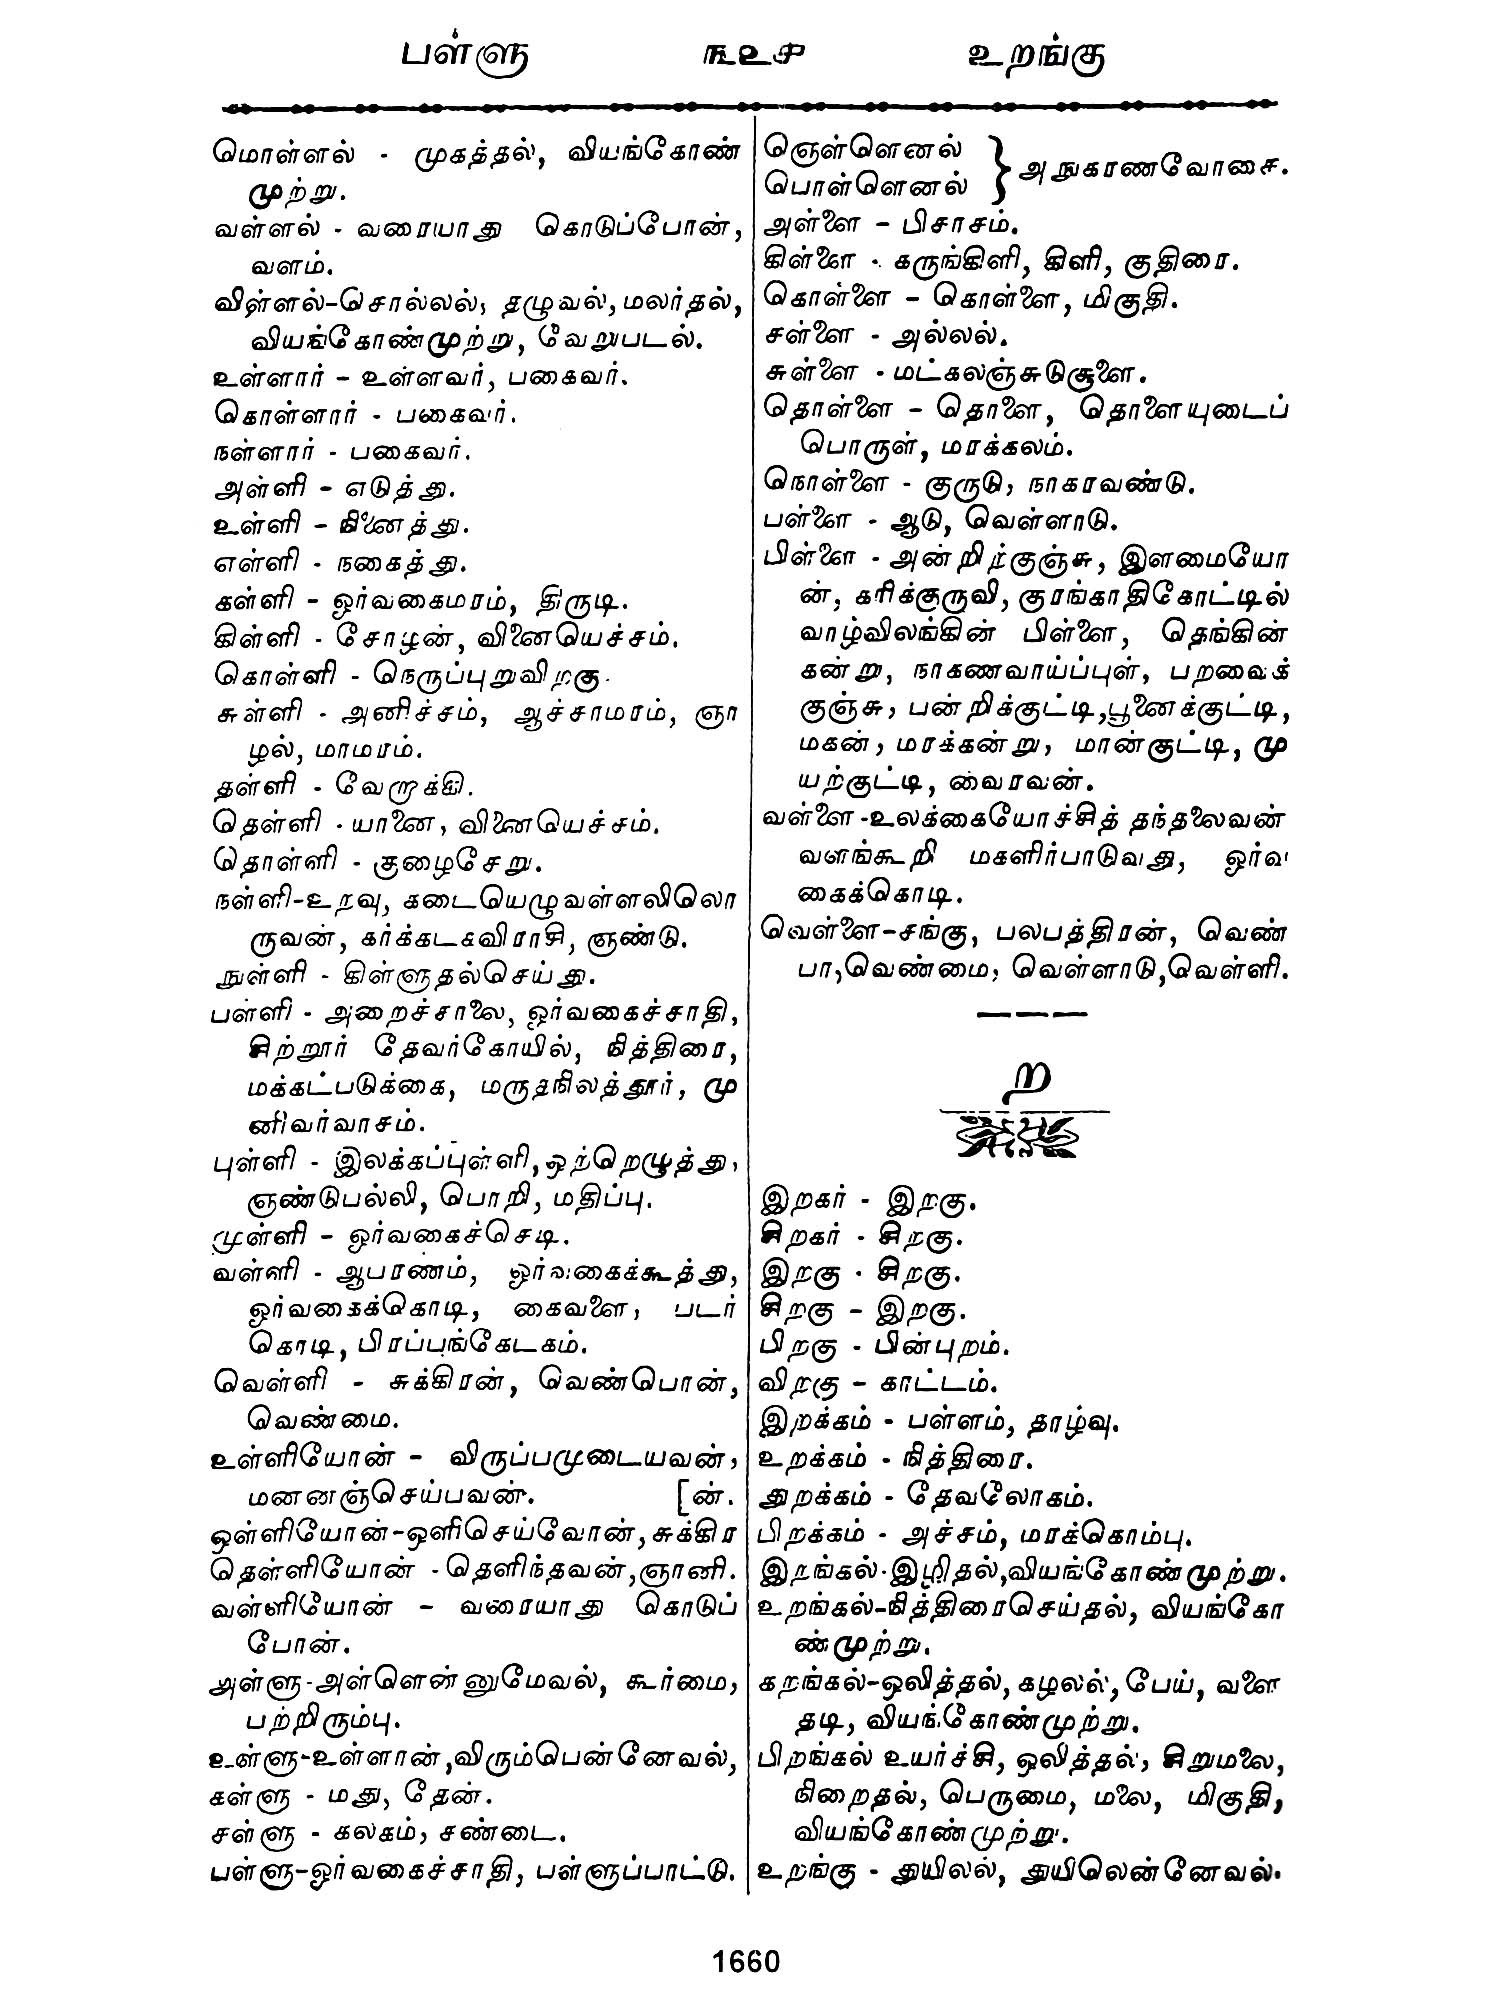 பள்ளு ௩௨௬ உறங்கு
மொள்ளல் - முகத்தல், வியங்கோண்
முற்று.
வள்ளல் - வரையாது கொடுப்போன்,
வளம்.
விள்ளல்-சொல்லல், தழுவல், மலர்தல்,
வியங்கோண்முற்று, வேறுபடல்.
உள்ளார் - உள்ளவர், பகைவர்.
கொள்ளார் - பகைவர்.
நள்ளார் - பகைவர்.
அள்ளி - எடுத்து.
உள்ளி - நினைத்து.
எள்ளி - நகைத்து.
கள்ளி - ஓர்வகைமரம், திருடி.
கிள்ளி - சோழன், வினையெச்சம்.
கொள்ளி - நெருப்புறுவிறகு.
சுள்ளி - அனிச்சம், ஆச்சாமரம், ஞா
ழல், மாமரம்.
தள்ளி - வேறாக்கி.
தெள்ளி - யானை, வினையெச்சம்.
தொள்ளி - குழைசேறு.
நள்ளி-உறவு, கடையெழுவள்ளலிலொ
ருவன், கர்க்கடகவிராசி, ஞண்டு.
நுள்ளி - கிள்ளுதல்செய்து.
பள்ளி - அறைச்சாலை, ஓர்வகைச்சாதி,
சிற்றூர் தேவர்கோயில், நித்திரை,
மக்கட்படுக்கை, மருதநிலத்தூர், மு
னிவர்வாசம்.
புள்ளி - இலக்கப்புள்ளி, ஒற்றெழுத்து,
ஞண்டுபல்லி, பொறி, மதிப்பு.
முள்ளி - ஓர்வகைச்செடி.
வள்ளி - ஆபரணம், ஓர்வகைக்கூத்து,
ஓர்வகைக்கொடி, கைவளை, படர்
கொடி, பிரப்பங்கேடகம்.
வெள்ளி - சுக்கிரன், வெண்பொன்,
வெண்மை.
உள்ளியோன் - விருப்பமுடையவன்,
மனனஞ்செய்பவன். [ன்.
ஒள்ளியோன்-ஒளிசெய்வோன், சுக்கிர
தெள்ளியோன் - தெளிந்தவன், ஞானி.
வள்ளியோன் - வரையாது கொடுப்
போன்.
அள்ளு-அள்ளென்னுமேவல், கூர்மை,
பற்றிரும்பு.
உள்ளு-உள்ளான், விரும்பென்னேவல்,
கள்ளு - மது, தேன்.
சள்ளு - கலகம், சண்டை.
பள்ளு-ஓர்வகைச்சாதி, பள்ளுப்பாட்டு.
ஞெள்ளெனல்
பொள்ளெனல் } அநுகரணவோசை.
அள்ளை - பிசாசம்.
கிள்ளை - கருங்கிளி, கிளி, குதிரை.
கொள்ளை - கொள்ளை, மிகுதி.
சள்ளை - அல்லல்.
சுள்ளை - மட்கலஞ்சுடுசூளை.
தொள்ளை - தொளை, தொளையுடைப்
பொருள், மரக்கலம்.
நொள்ளை - குருடு, நாகரவண்டு.
பள்ளை - ஆடு, வெள்ளாடு.
பிள்ளை - அன்றிற்குஞ்சு, இளமையோ
ன், கரிக்குருவி, குரங்காதிகோட்டில்
வாழ்விலங்கின் பிள்ளை, தெங்கின்
கன்று, நாகணவாய்ப்புள், பறவைக்
குஞ்சு, பன்றிக்குட்டி, பூனைக்குட்டி,
மகன், மரக்கன்று, மான்குட்டி, மு
யற்குட்டி, வைரவன்.
வள்ளை-உலக்கையோச்சித் தந்தலைவன்
வளங்கூறி மகளிர்பாடுவது, ஓர்வ
கைக்கொடி.
வெள்ளை-சங்கு, பலபத்திரன், வெண்
பா, வெண்மை, வெள்ளாடு, வெள்ளி.
ற
இறகர் - இறகு.
சிறகர் - சிறகு.
இறகு - சிறகு.
சிறகு - இறகு.
பிறகு - பின்புறம்.
விறகு - காட்டம்.
இறக்கம் - பள்ளம், தாழ்வு.
உறக்கம் - நித்திரை.
துறக்கம் - தேவலோகம்.
பிறக்கம் - அச்சம், மரக்கொம்பு.
இறங்கல்-இழிதல், வியங்கோண்முற்று.
உறங்கல்-நித்திரைசெய்தல், வியங்கோ
ண்முற்று.
கறங்கல்-ஒலித்தல், கழலல், பேய், வளை
தடி, வியங்கோண்முற்று.
பிறங்கல் உயர்ச்சி, ஒலித்தல், சிறுமலை,
நிறைதல், பெருமை, மலை, மிகுதி,
வியங்கோண்முற்று.
உறங்கு - துயிலல், துயிலென்னேவல்.
1660